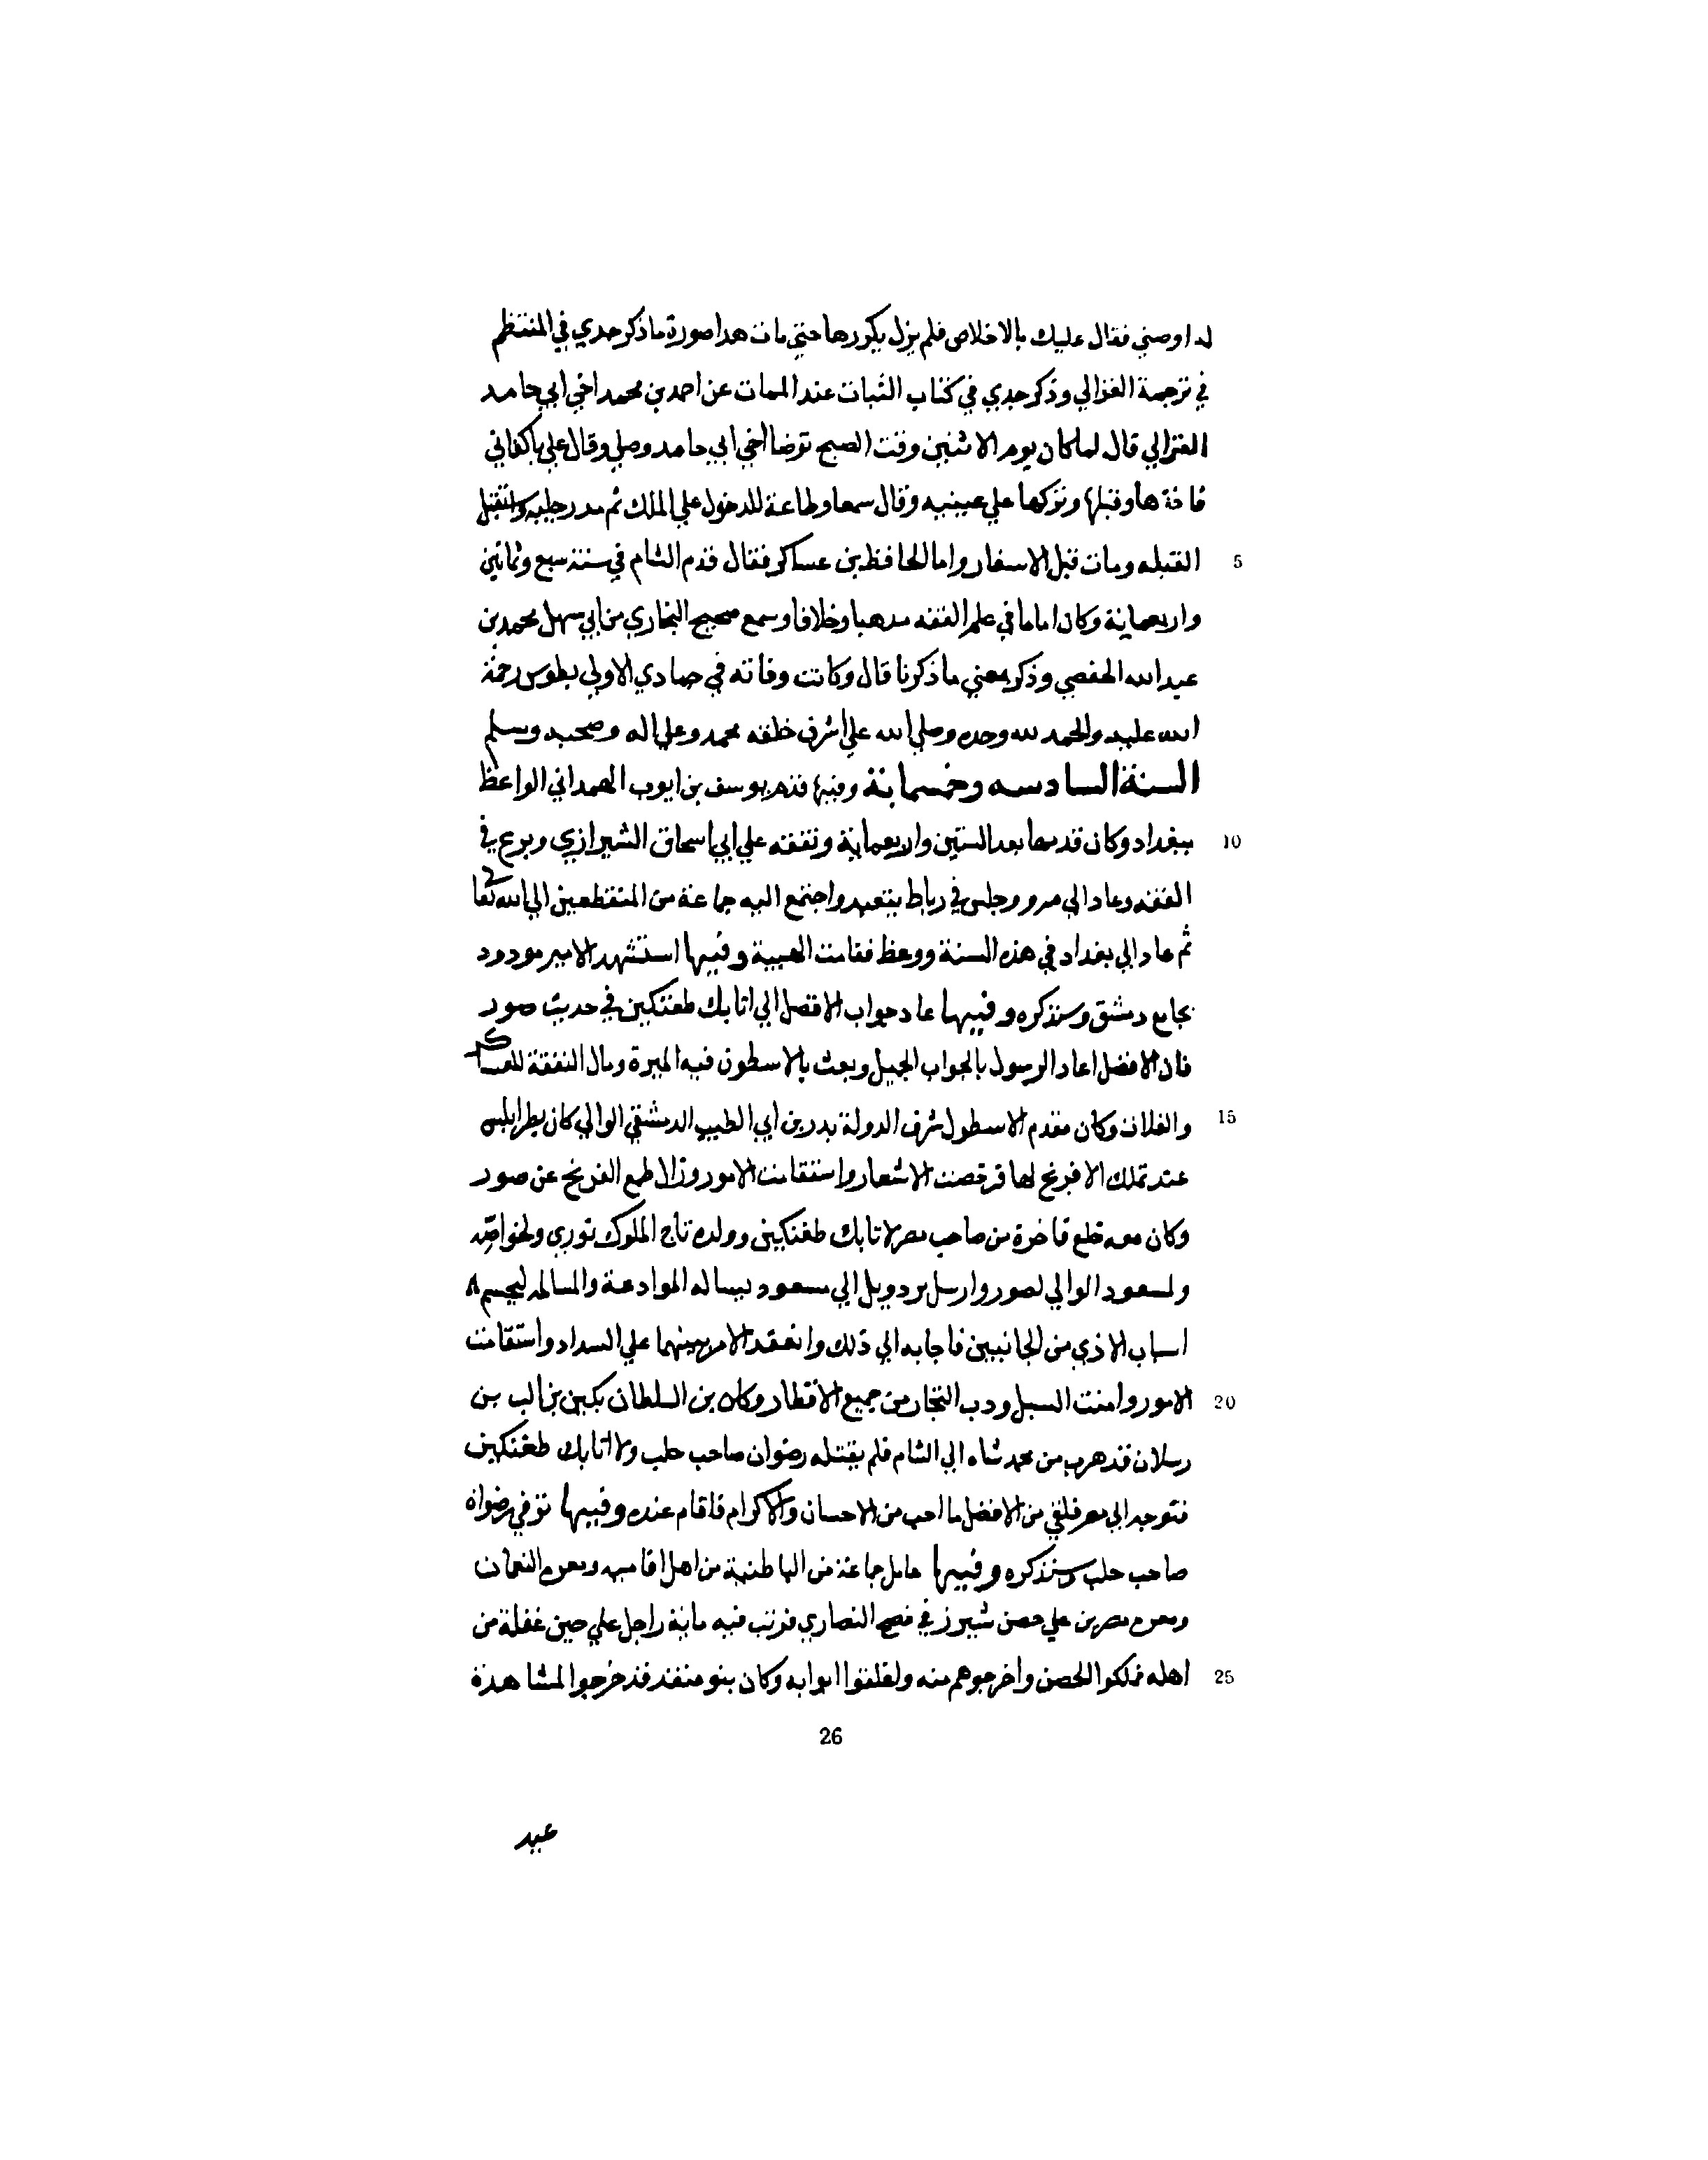 له اوصني فقال عليك بالاخلاص فلم يزل يكررها حتي مات هدا صورة ما ذكر جدي في المنتظم
في ترجمة الغزالي وذكر جدي في كتاب الثبات عند الممات عن احمد بن محمد اخي ابي حامد
الغزالي قال لما كان يوم الاثنين وقت الصبح توضا اخي ابي حامد وصلي وقال علي باكفاني
فاخذها وقبلها وتركها علي عينيه وقال سمعا وطاعة للدخول علي الملك ثم مد رجليه واستقبل
5 القبله ومات قبل الاسفار واما الحافظ بن عساكر فقال قدم الشام في سنة سبع وثمانين
واربعماية وكان اماما في علم الفقه مدهبا وخلافا وسمع صحيح البخاري من ابي سهل محمد بن
عبد الله الحفصي وذكر معني ما ذكرنا قال وكانت وفاته في جمادي الاولي بطوس رحمة
الله عليه والحمد لله وحده وصلي الله علي اشرف خلقه محمد وعلي اله وصحبه وسلم
السنة السادسه وخمسماية وفيها قدم يوسف بن ايوب الهمداني الواعظ
10 ببغداد وكان قدمها بعد الستين واربعماية وتفقه علي ابي اسحاق الشيرازي وبرع في
الفقه وعاد الي مرو وجلس في رباط يتعبد واجتمع اليه جماعة من المنقطعين الي الله تعا لي
ثم عاد الي بغداد في هذه السنة ووعظ فقامت العبية وفيها استشهد الامير مودود
بجامع دمشق وسنذكره وفيها عاد جواب الافضل الي اتابك طغتكين في حديث صور
فان الافضل اعاد الرسول بالجواب الجميل وبعث بالاسطون فيه الميرة ومال النفقة للعساكر
15 والغلات وكان مقدم الاسطول شرف الدولة بدر بن ابي الطيب الدمشقي الوالي كان بطرابلس
عند تملك الافرنج لها فرخصت الاشعار واستقامت الامور وزال طمع الفرنج عن صور
وكان معه خلع فاخرة من صاحب مصر لاتابك طغتكين وولده تاج الملوك توري ولخواصه
ولمسعود الوالي لصور وارسل بردويل الي مسعود يساله الموادعة والمسالمه ليحسم
اسباب الاذي من الجانبين فاجابه الي ذلك وانعقد الامر بينهما علي السداد واستقامت
20 الامور وامنت السبل ودب التجار من جميع الاقطار وكان بن السلطان بكين بن الب بن
رسلان قد هرب من محمد شاه الي الشام فلم يقبله رضوان صاحب حلب ولا اتابك طغتكين
فتوجه الي مصر فلقي من الافضل ما احب من الاحسان والاكرام فاقام عنده وفيها توفي رضوان
صاحب حلب وسنذكره وفيها عامل جماعة من الباطنية من اهل افاميه ومعره النعمان
ومعره مصرين علي حصن شيزر في فصح النصاري فرتب فيه ماية راجل علي حين غفلة من
25 اهله فملكوا الحصن واخرجوهم منه ولغلقوا ابوابه وكان بنو منقذ قد خرجوا لمشاهدة
26
عيد